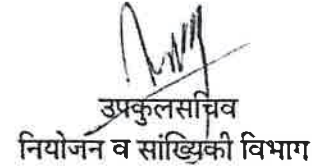 उपकुलसचिव
नियोजन व सांख्यिकी विभाग